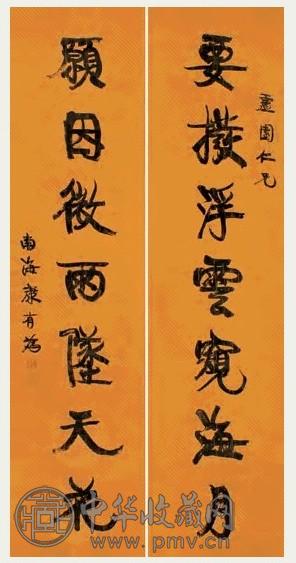 園仁兄
要撥浮雲窺海月
願因微雨墜天花
南海康有為
中华收藏网
www.pmv.cn